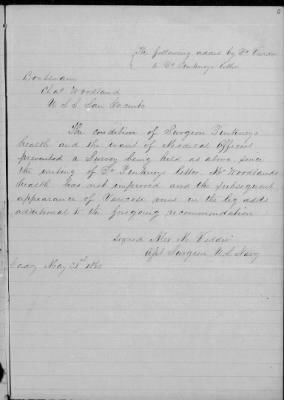 The following added by Dr
to Dr Pinkneys letter
Boatswain
Chas Woodland
U S S San Jacinto
The condition of Surgeon Pinkneys
health and the want of Medical Officers
prevented a Survey being held as above, since
the writing of Dr Pinkneys letter Mr Woodlands
health has not improved and the subsequent
appearance of Varicose veins on the leg adds
additional to the foregoing recommendation
Signed Alex M
Surgeon U S Navy
May 21st